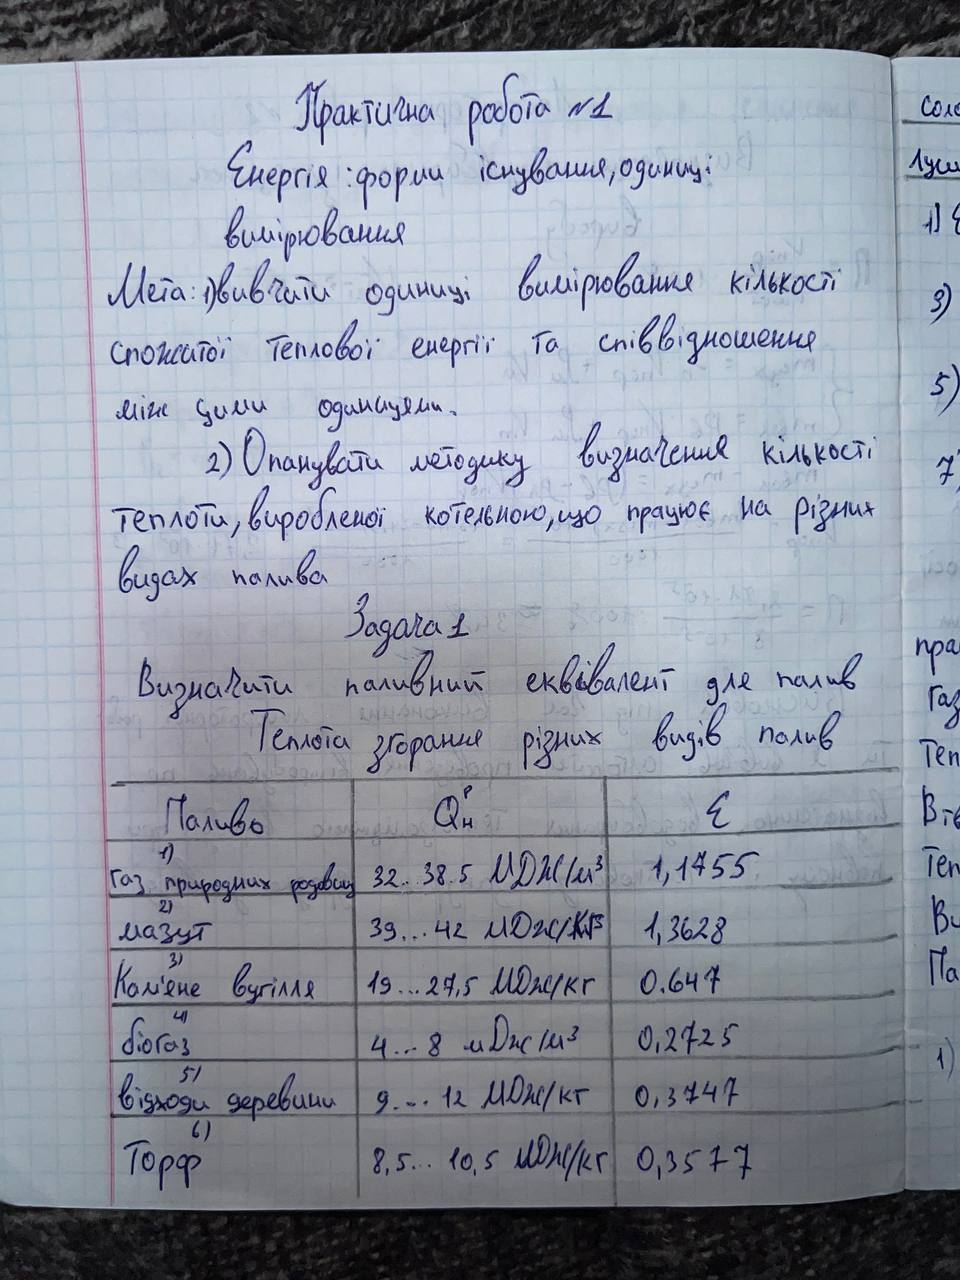 Практична робота №1
Енергія: форми існування, одиниці
вимірювання
Мета: 1) вивчити одиниці вимірювання кількості
спожитої теплової енергії та співвідношення
між цими одиницями.
2) Опанувати методику визначення кількості
теплоти, виробленої котельною, що працює на різних
видах палива
Задача 1
Визначити паливний еквівалент для палив
Теплота згорання різних видів палив
Паливо Qнᴾ Ɛ
1) газ природних родовищ 32...38.5 МДж/м³ 1,1755
2) мазут 39...42 МДж/кг 1,3628
3) Кам'яне вугілля 19...27,5 МДж/кг 0.647
4) біогаз 4...8 мДж/м³ 0,2725
5) відходи деревини 9....12 МДж/кг 0,3747
6) Торф 8,5...10,5 МДж/кг 0,3577
1)
3)
5)
1)